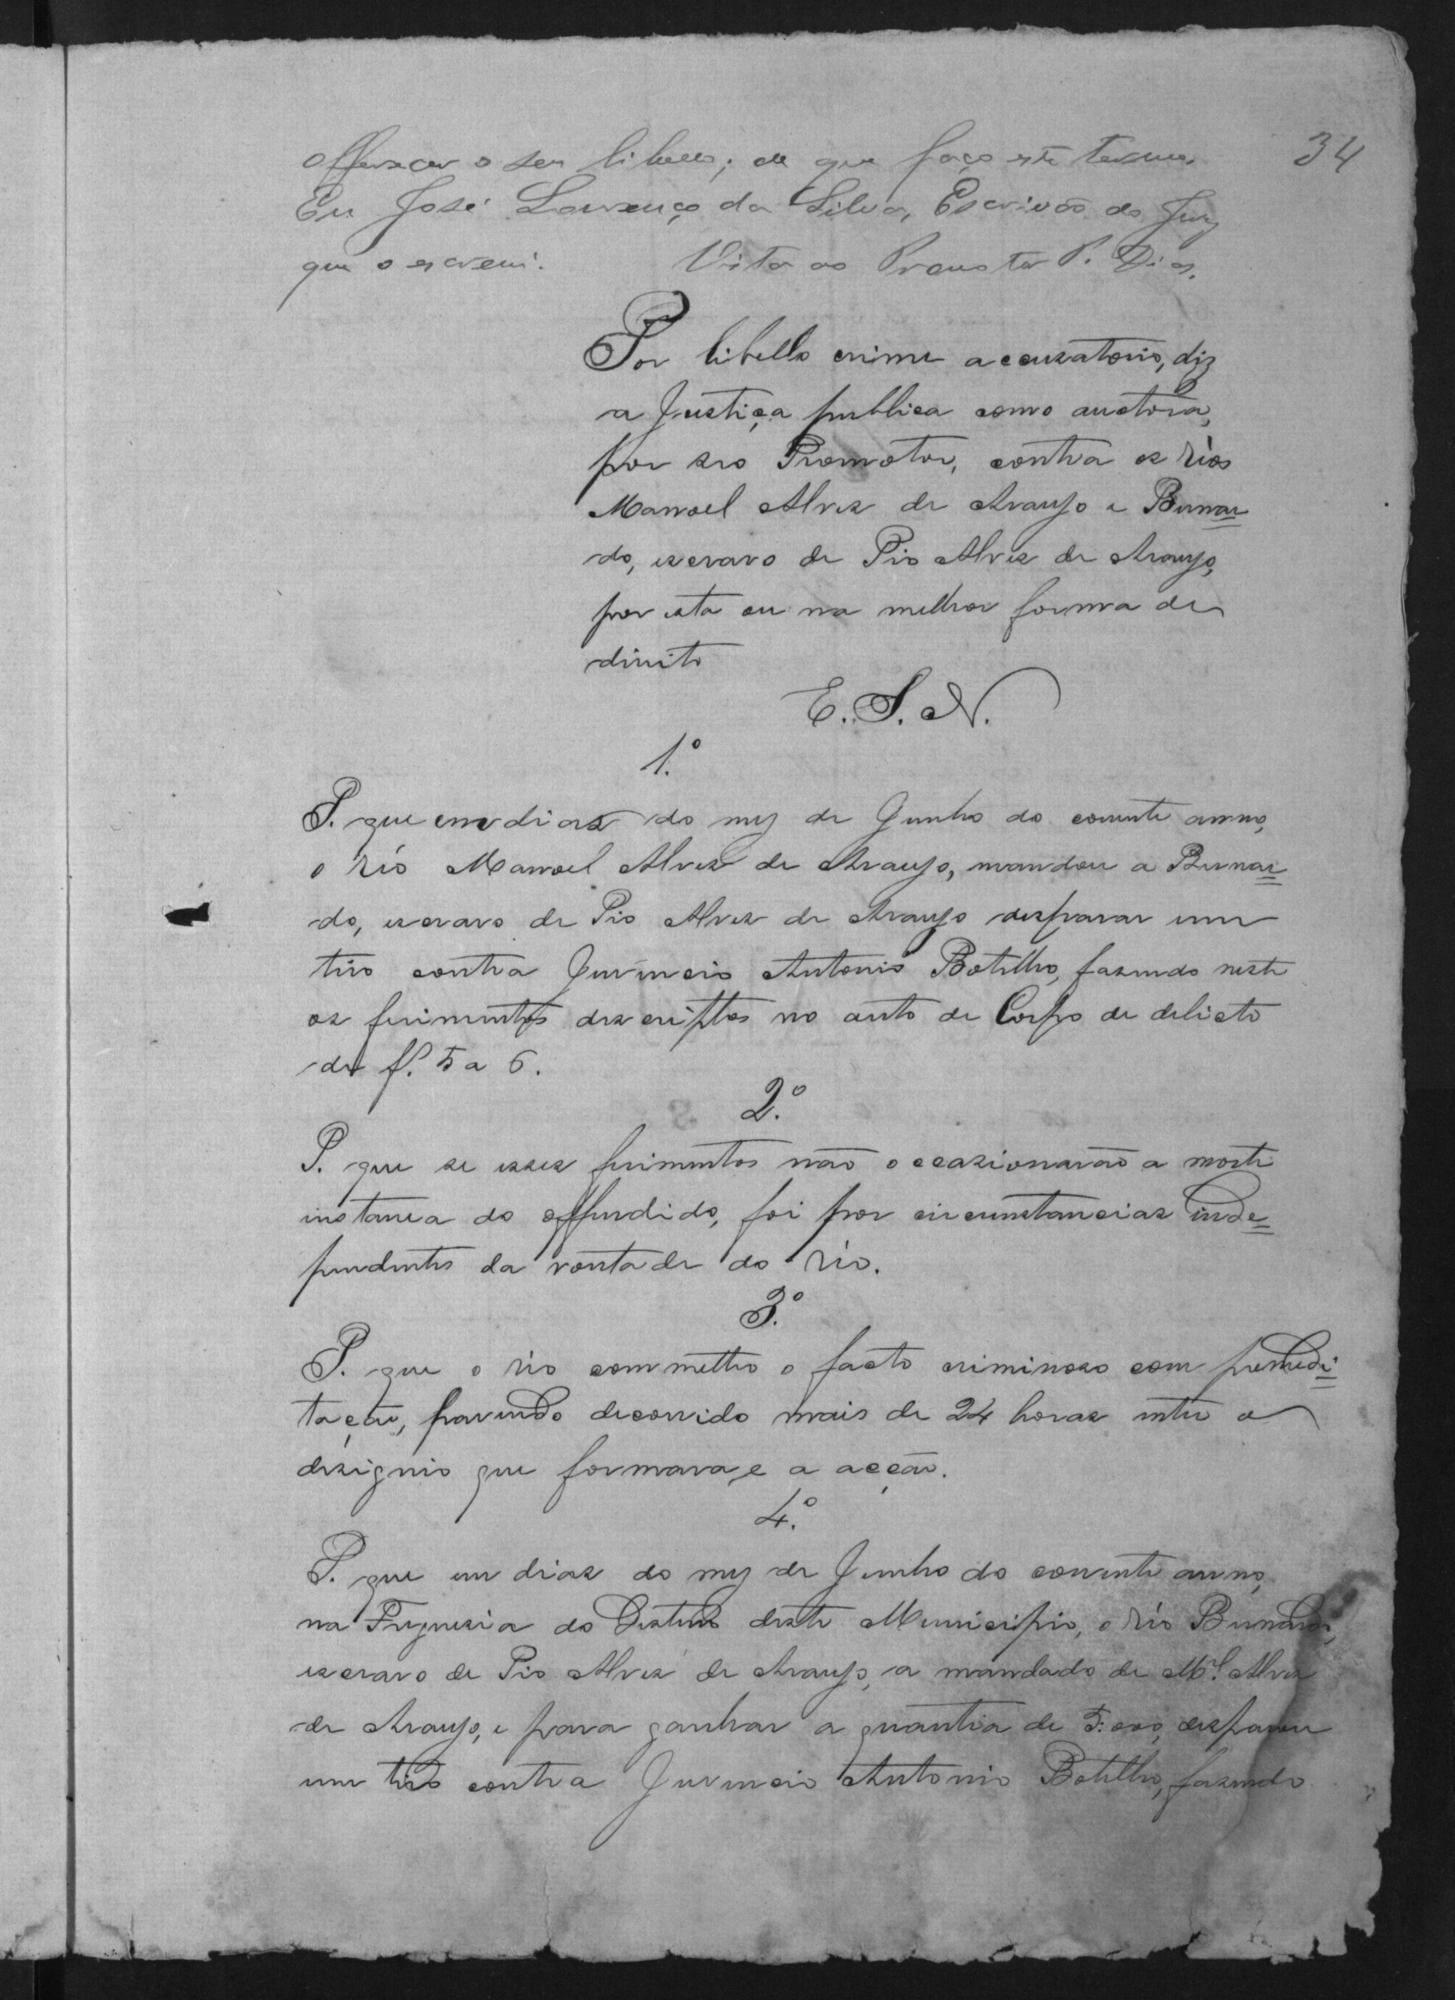 34
offerecer o seu libello; de que faço este termo
Eu José Lourenço da Silva, Escrivão do Jury
que o escrevi. Vista ao Promotor P. Dias.
Por libello crime accusatorio, diz
a Justiça publica como auctora,
por seo Promotor, contra os réos
Manoel Alves de Araujo e Bernar=
do, escravo de Pio Alves de Araujo,
por esta ou na melhor forma de
direito
E. S. N.
1.º
P. que em dias do mez de Junho do corrente anno,
o réo Manoel Alves de Araujo, mandou a Bernar=
do, escravo de Pio Alves de Araujo disparar um
tiro contra Juvencio Antonio Botelho, fasendo neste
os ferimentos descriptos no auto de Corpo de delicto
de f. 5 a 6.
2.º
P. que se esses ferimentos não occasionarão a morte
instanea do offendido, foi por circunstancias inde=
pendentes da vontade do réo.
3.º
P. que o réo commetteo o facto criminoso com premedi=
tação, havendo decorrido mais de 24 horas entre o
designio que formara, e a acção.
4.º
P. que em dias do mez de Junho do corrente anno,
na Freguesia do deste Municipio, o réo Bernardo,
escravo de Pio Alves de Araujo, a mandado de M.el Alves
de Araujo, e para ganhar a quantia de 5:000, disparou
um tiro contra Juvencio Antonio Botelho, fasendo